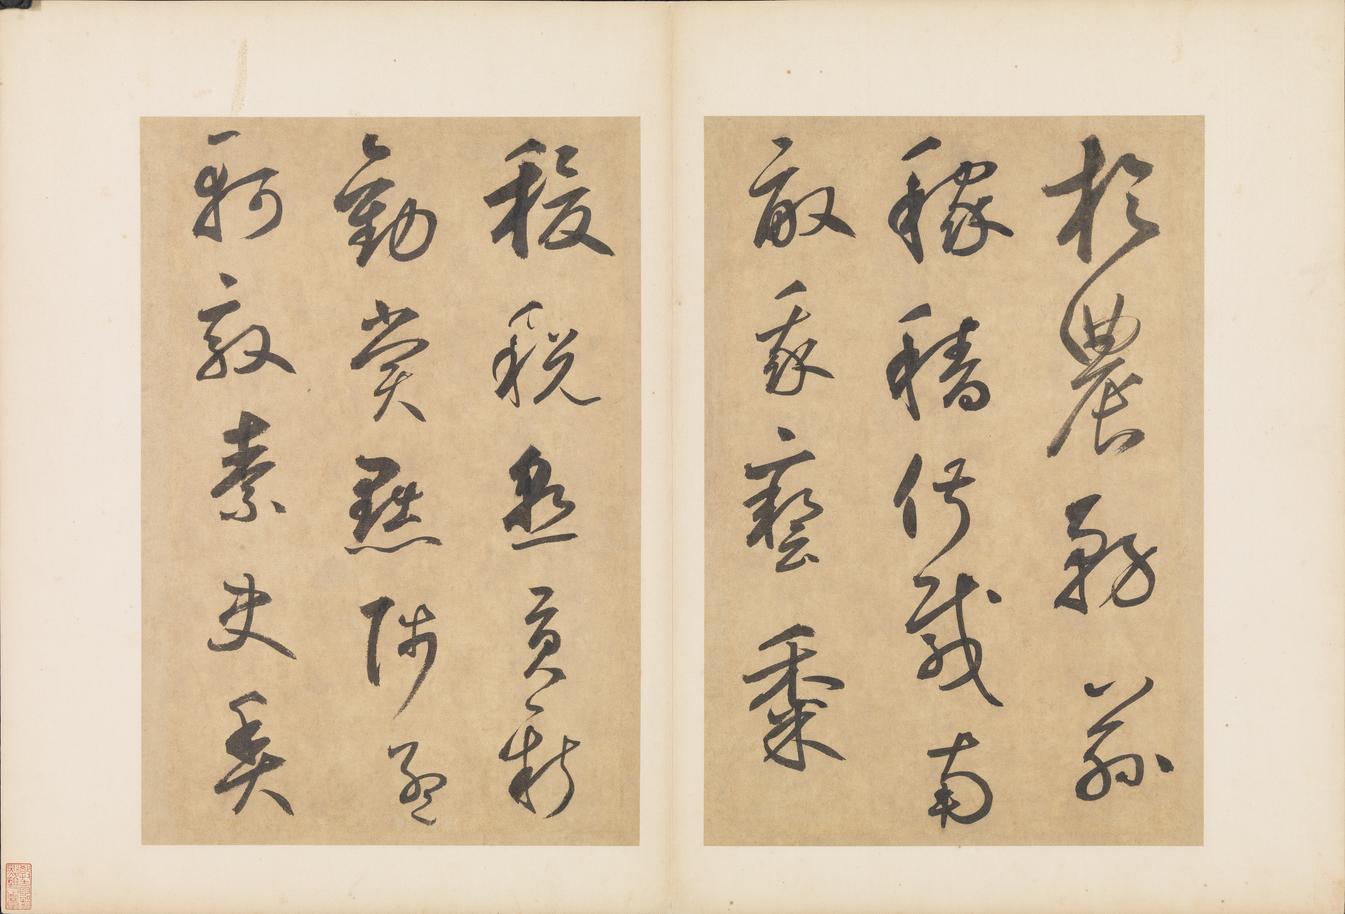 於農務茲
稼穡俶載南
畝我藝黍
稷稅熟貢新
勸賞黜陟孟
軻敦素史魚